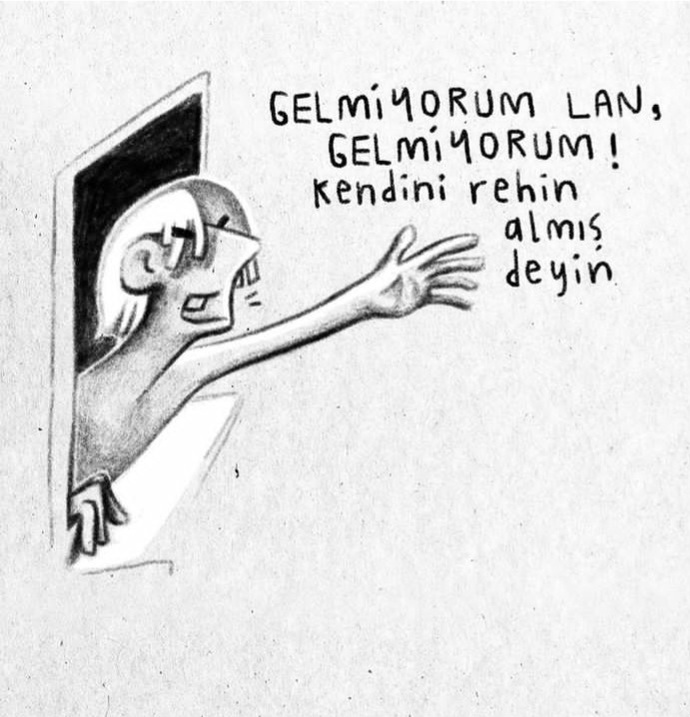 GELMİYORUM LAN,
GELMİYORUM!
kendini rehin
almış
deyin